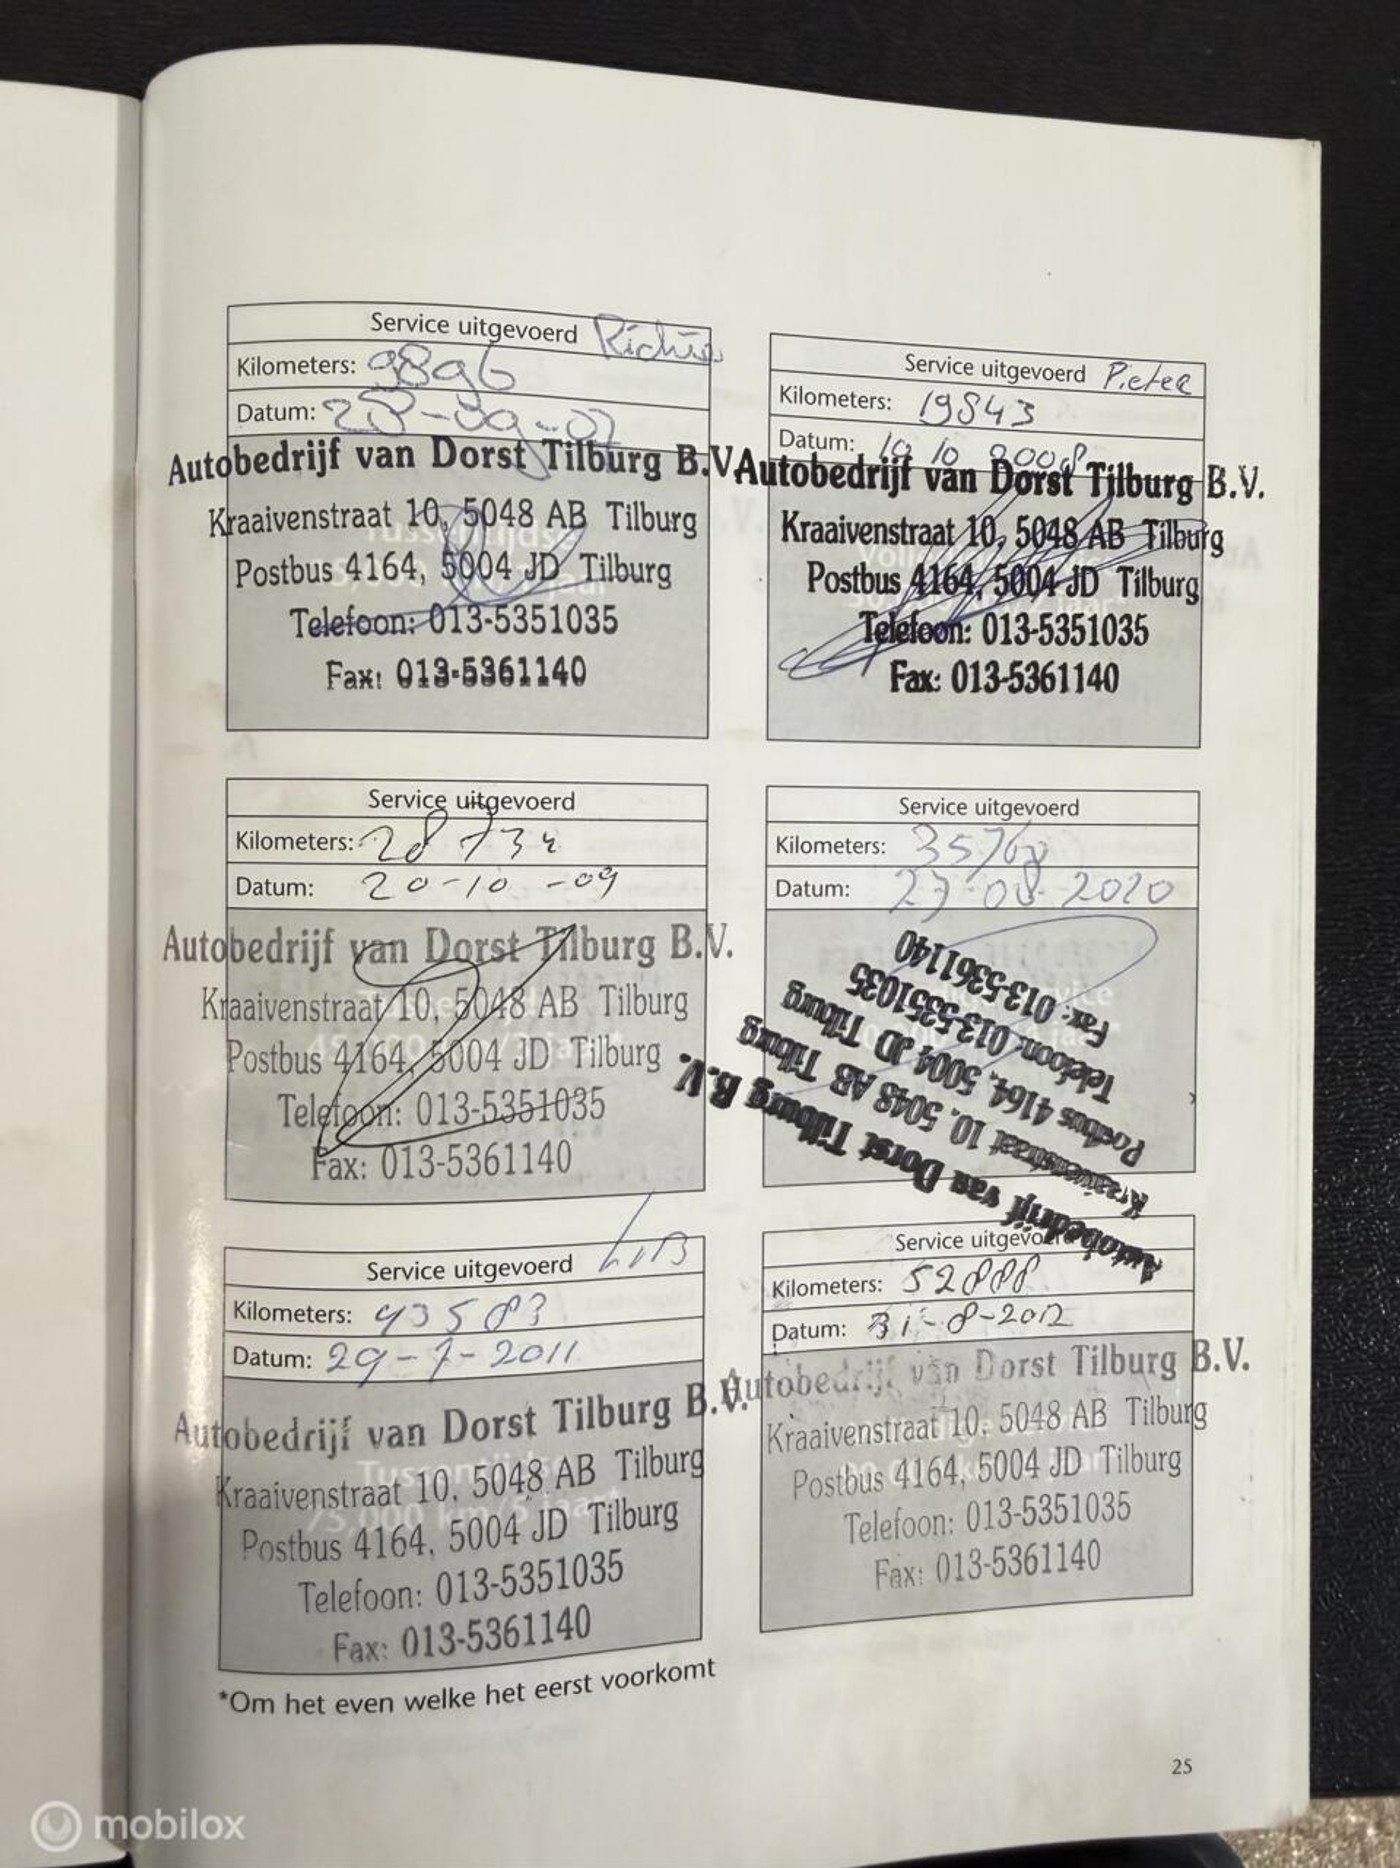 Service uitgevoerd
Kilometers: 9896
Datum: 28-09-07
Autobedrijf van Dorst Tilburg B.V.
Kraaivenstraat 10, 5048 AB Tilburg
Postbus 4164, 5004 JD Tilburg
Telefoon: 013-5351035
Fax: 013-5361140
Service uitgevoerd Pieter
Kilometers: 19843
Datum: 10 2008
Autobedrijf van Dorst Tilburg B.V.
Kraaivenstraat 10, 5048 AB Tilburg
Postbus 4164, 5004 JD Tilburg
Telefoon: 013-5351035
Fax: 013-5361140
Service uitgevoerd
Kilometers: 28734
Datum: 20-10-09
Autobedrijf van Dorst Tilburg B.V.
Kraaivenstraat 10, 5048 AB Tilburg
Postbus 4164, 5004 JD Tilburg
Telefoon: 013-5351035
Fax: 013-5361140
Service uitgevoerd
Kilometers:
Datum: 27-08-2010
Autobedrijf van Dorst Tilburg B.V.
Kraaivenstraat 10, 5048 AB Tilburg
Postbus 4164, 5004 JD Tilburg
Telefoon: 013-5351035
Fax: 013-5361140
Service uitgevoerd
Kilometers: 43583
Datum: 29-7-2011
Autobedrijf van Dorst Tilburg B.V.
Tussentijdse
Kraaivenstraat 10, 5048 AB Tilburg
75.000 km/5 jaar*
Postbus 4164, 5004 JD Tilburg
Telefoon: 013-5351035
Fax: 013-5361140
Service uitgevoerd
Kilometers: 52888
Datum: 31-8-2012
Autobedrijf van Dorst Tilburg B.V.
Kraaivenstraat 10, 5048 AB Tilburg
Postbus 4164, 5004 JD Tilburg
Telefoon: 013-5351035
Fax: 013-5361140
*Om het even welke het eerst voorkomt
25
mobilox